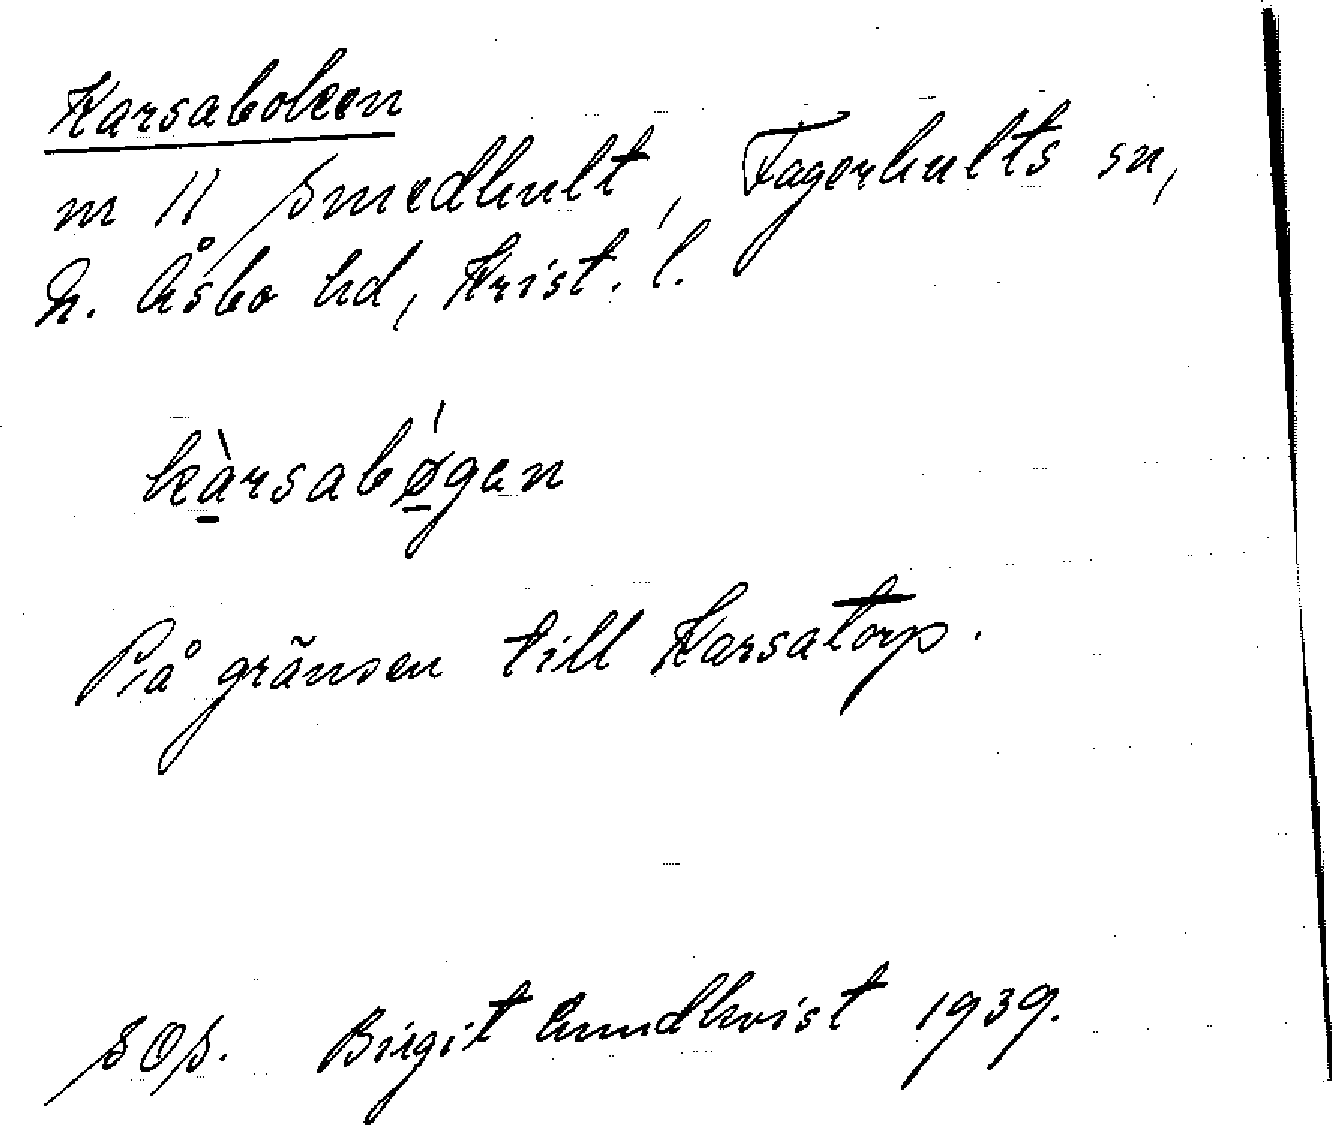 Karsaboken
m 11 Smedhult, Fagerhults sn,
N. Åsbo hd, Krist. l.
kàrsabǿgen
På gränsen till Karsatorp.
SOS. Birgit Lundkvist 1939.